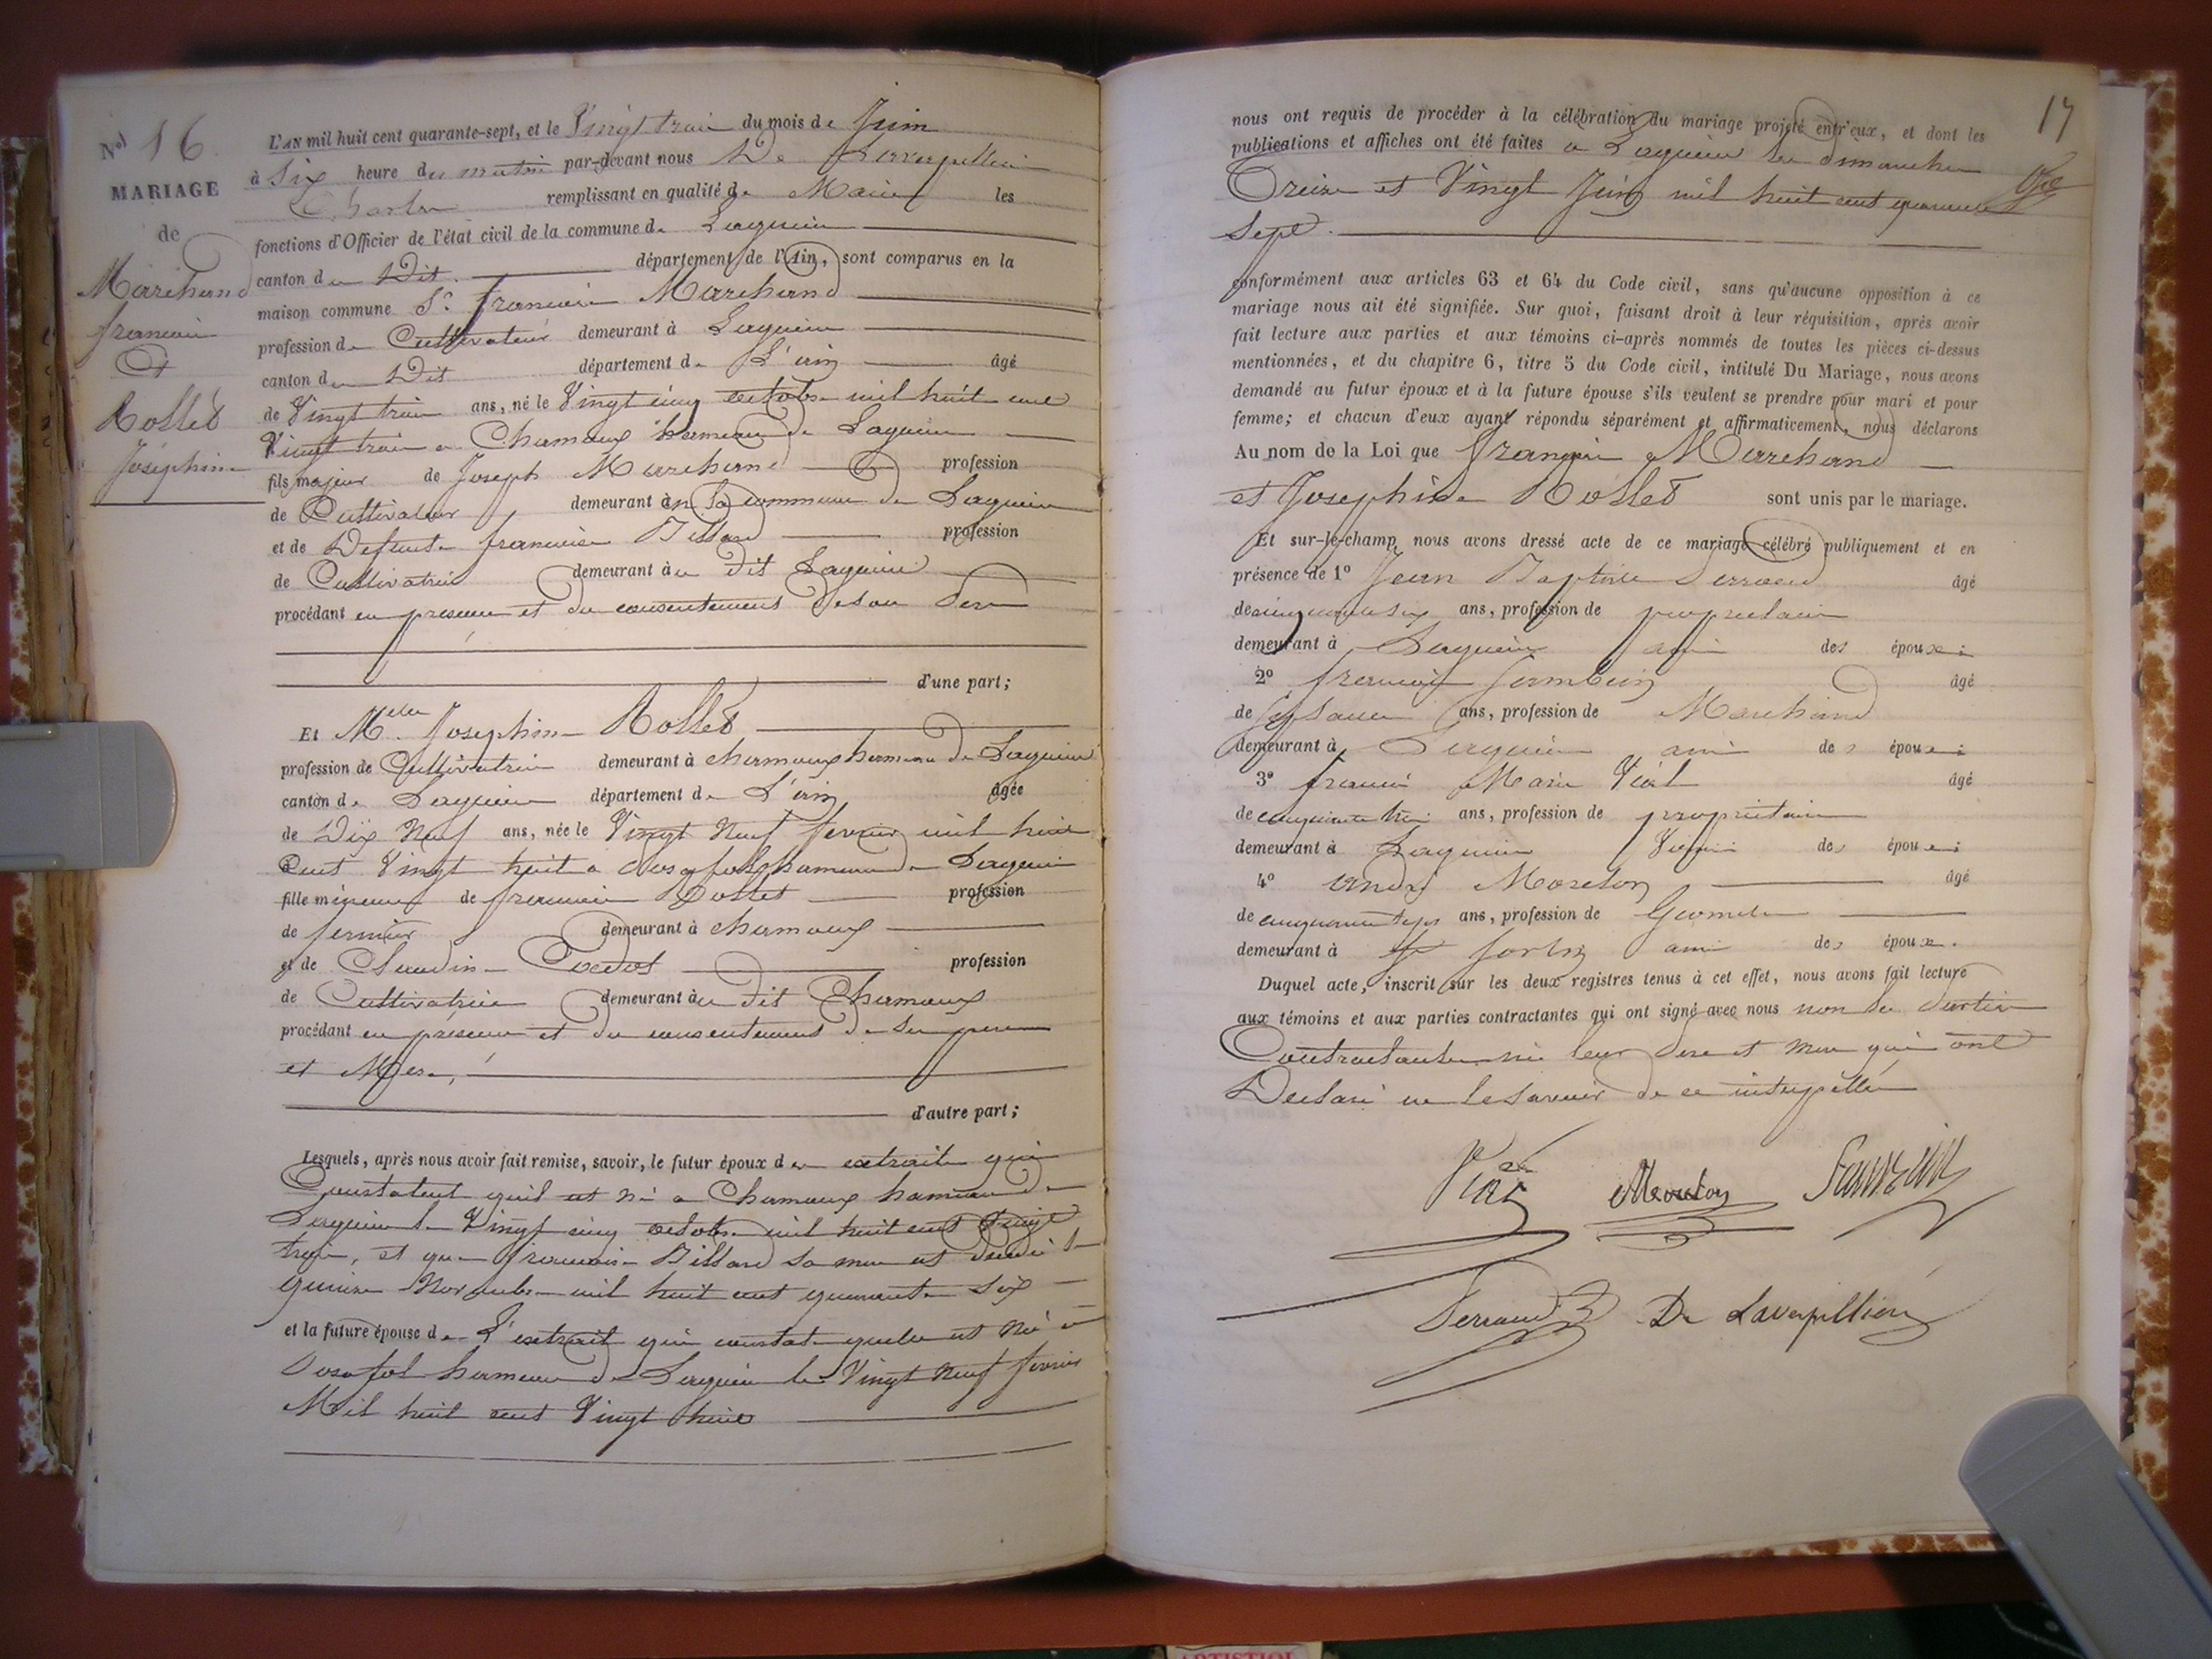 No 16.
MARIAGE
de
Marchand
françois
Et
Rollet
Joséphine
L'AN mil huit cent quarante-sept, et le Vingt trois du mois de Juin
à Six heure du matin par-devant nous De Laverpillière
Charles remplissant en qualité de Maire les
fonctions d'Officier de l'état civil de la commune de Lagnieu
canton du Dit département de l'Ain, sont comparus en la
maison commune Sr. francois Marchand
profession de Cultivateur demeurant à Lagnieu
canton du Dit département de L'ain âgé
de Vingt trois ans, né le Vingt cinq octobre mil huit cent
Vingt trois a Charmoux hameau de Lagnieu
fils majeur de Joseph Marchand profession
de Cultivateur demeurant à en la commune de Lagnieu
et de Defunte francoise Billard profession
de Cultivatrice demeurant à u dit Lagnieu
procédant en presence et du consentement de son Pere
d'une part;
Et Melle Josephine Rollet
profession de Cultivatrice demeurant à charmoux hameau de Lagnieu
canton de Lagnieu département de L'ain âgée
de Dix Neuf ans, née le Vingt Neuf fevrier mil huit
Cent Vingt huit a Posafol hameau de Lagnieu
fille mineure de francois Rollet profession
de fermier demeurant à charmoux
et de Claudine profession
de Cultivatrice demeurant à u dit Charmoux
procédant en presence et du consentement de ses pere
et Mere,
d'autre part;
Lesquels, après nous avoir fait remise, savoir, le futur époux des extraits qui
Constatent quil est né a Charmoux hameau de
Lagnieu le Vingt cinq octobre mil huit cent Vingt
trois, et que francoise Billard sa mere est décédé le
quinze Novembre mil huit cent quarante Six
et la future épouse de L'extrait qui constate quelle est née a
Posafol hameau de Lagnieu le Vingt Neuf fevrier
Mil huit cent Vingt huit
17
nous ont requis de procéder à la célébration du mariage projeté entr'eux, et dont les
publications et affiches ont été faites a Lagnieu les dimanches
Treize et Vingt Juin mil huit cent quarante
Sept.
conformément aux articles 63 et 64 du Code civil, sans qu'aucune opposition à ce
mariage nous ait été signifiée. Sur quoi, faisant droit à leur réquisition, après avoir
fait lecture aux parties et aux témoins ci-après nommés de toutes les pièces ci-dessus
mentionnées, et du chapitre 6, titre 5 du Code civil, intitulé Du Mariage, nous avons
demandé au futur époux et à la future épouse s'ils veulent se prendre pour mari et pour
femme; et chacun d'eux ayant répondu séparément et affirmativement, nous déclarons
Au nom de la Loi que françois Marchand
et Josephine Rollet sont unis par le mariage.
Et sur-le-champ nous avons dressé acte de ce mariage célébré publiquement et en
présence de 1° Jean Baptiste Serraud âgé
de cinquante six ans, profession de proprietaire
demeurant à Lagnieu ami des époux;
2° francois âgé
de ans, profession de Marchand
demeurant à Lagnieu ami des époux;
3° francois Marie Vial âgé
de cinquante ans, profession de propriétaire
demeurant à Lagnieu Voisin des époux;
4° andré Moreton âgé
de cinquante sept ans, profession de Geometre
demeurant à St Sorlin ami des époux.
Duquel acte, inscrit sur les deux registres tenus à cet effet, nous avons fait lecture
aux témoins et aux parties contractantes qui ont signé avec nous non les Parties
Contractantes ni leur Pere et mere qui ont
Declaré ne le savoir de ce interpellés
Vial Moreton
Serraud De Laverpillière